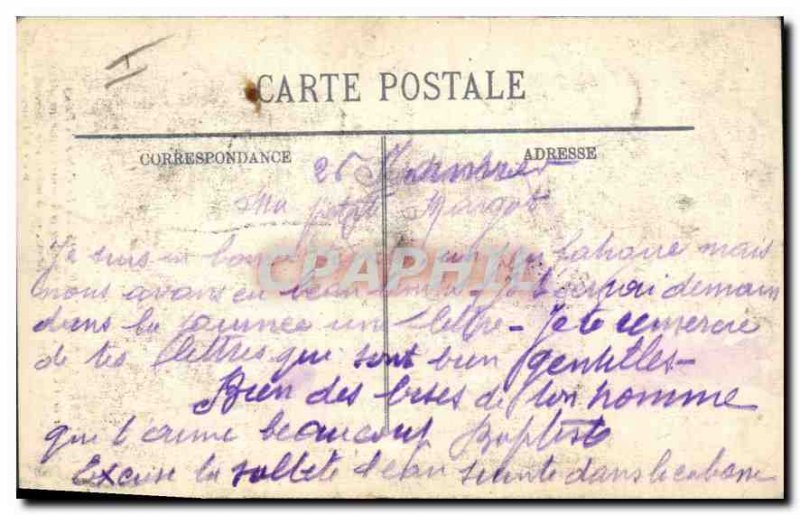 CARTE POSTALE
CORRESPONDANCE
ADRESSE
25
Ma petite Margot
Je suis en bonne mais
nous avons eu beau demain
dans la journee une lettre - Je te remercie
de tes lettres que sont bien gentilles -
Bien des bises de ton homme
que t'aime beaucoup Baptiste
Excuse la salleté l'eau suinte dans la cabane
CPAPHIL